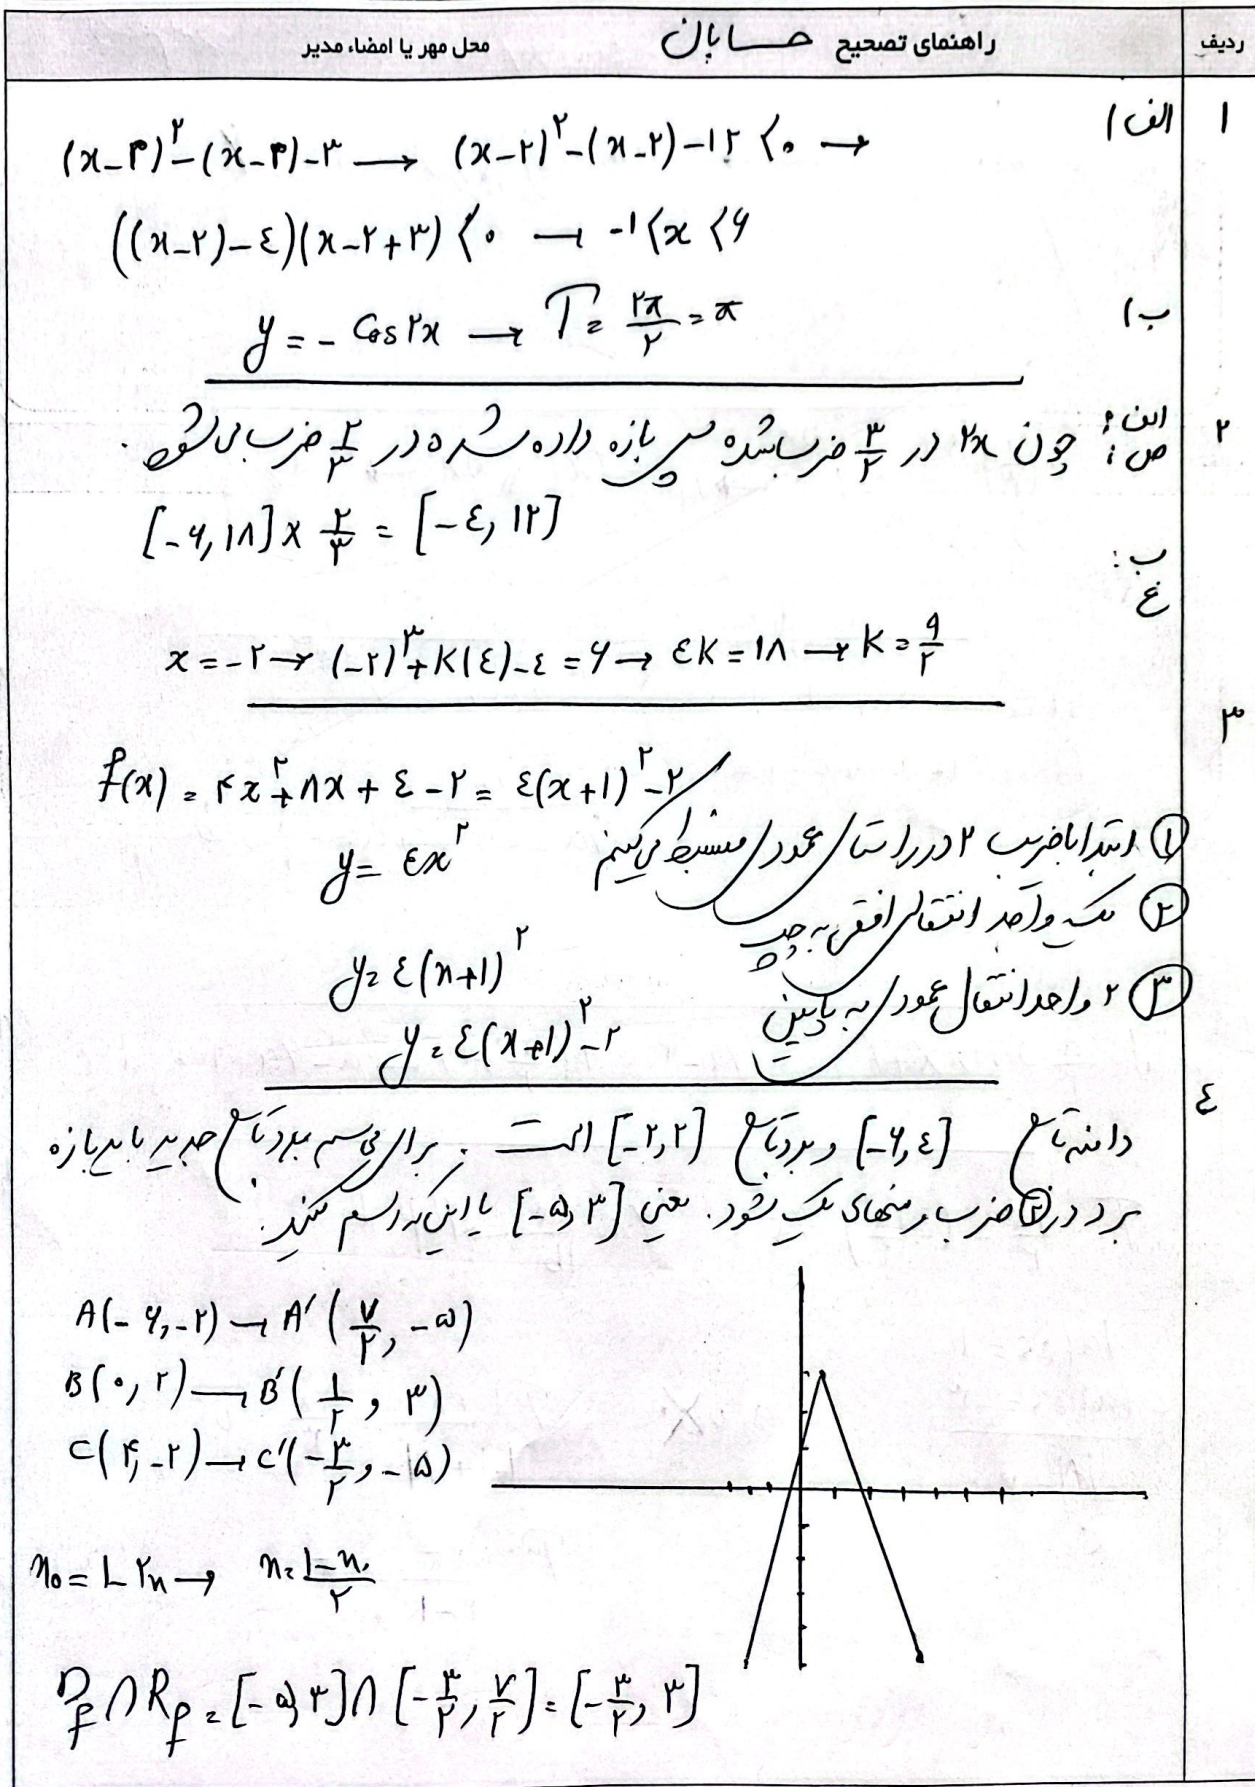 ردیف راهنمای تصحیح حسابان محل مهر یا امضاء مدیر
۱ الف)
(x-۴)^۲-(x-۴)-۳ → (x-۲)^۲-(x-۲)-۱۲ < ۰ →
((x-۲)-۴)(x-۲+۳) < ۰ → -۱ < x < ۶
ب) y = - Cos ۲x → T = ۲π/۲ = π
۲ الف: ص: چون ۲x در ۳/۲ ضرب شده پس بازه داده شده در ۲/۳ ضرب می‌شود.
[-۶, ۱۸] × ۲/۳ = [-۴, ۱۲]
ب:
غ
x = -۲ → (-۲)^۳ + K(۴) -۴ = ۶ → ۴K = ۱۸ → K = ۹/۲
۳
f(x) = ۴x^۲ + ۸x + ۴ - ۲ = ۴(x+۱)^۲ - ۲
① ابتدا با ضریب ۲ در راستای عمودی منبسط می‌کنیم
y = ۴x^۲
② یک واحد انتقال افقی به چپ
y = ۴(x+۱)^۲
③ ۲ واحد انتقال عمودی به پایین
y = ۴(x+۱)^۲ - ۲
۴
دامنه تابع [-۶, ۴] و برد تابع [-۲, ۲] است . برای رسم برد تابع جدید باید بازه
برد در ② ضرب و منهای یک شود. یعنی [-۵, ۳] یا این که رسم کنید.
A(-۶, -۲) → A′(۷/۲, -۵)
B(۰, ۲) → B′(۱/۲, ۳)
C(۴, -۲) → C′(-۳/۲, -۵)
x₀ = ۱-۲x → x = (۱-x₀)/۲
D_f ∩ R_f = [-۵, ۳] ∩ [-۳/۲, ۷/۲] = [-۳/۲, ۳]